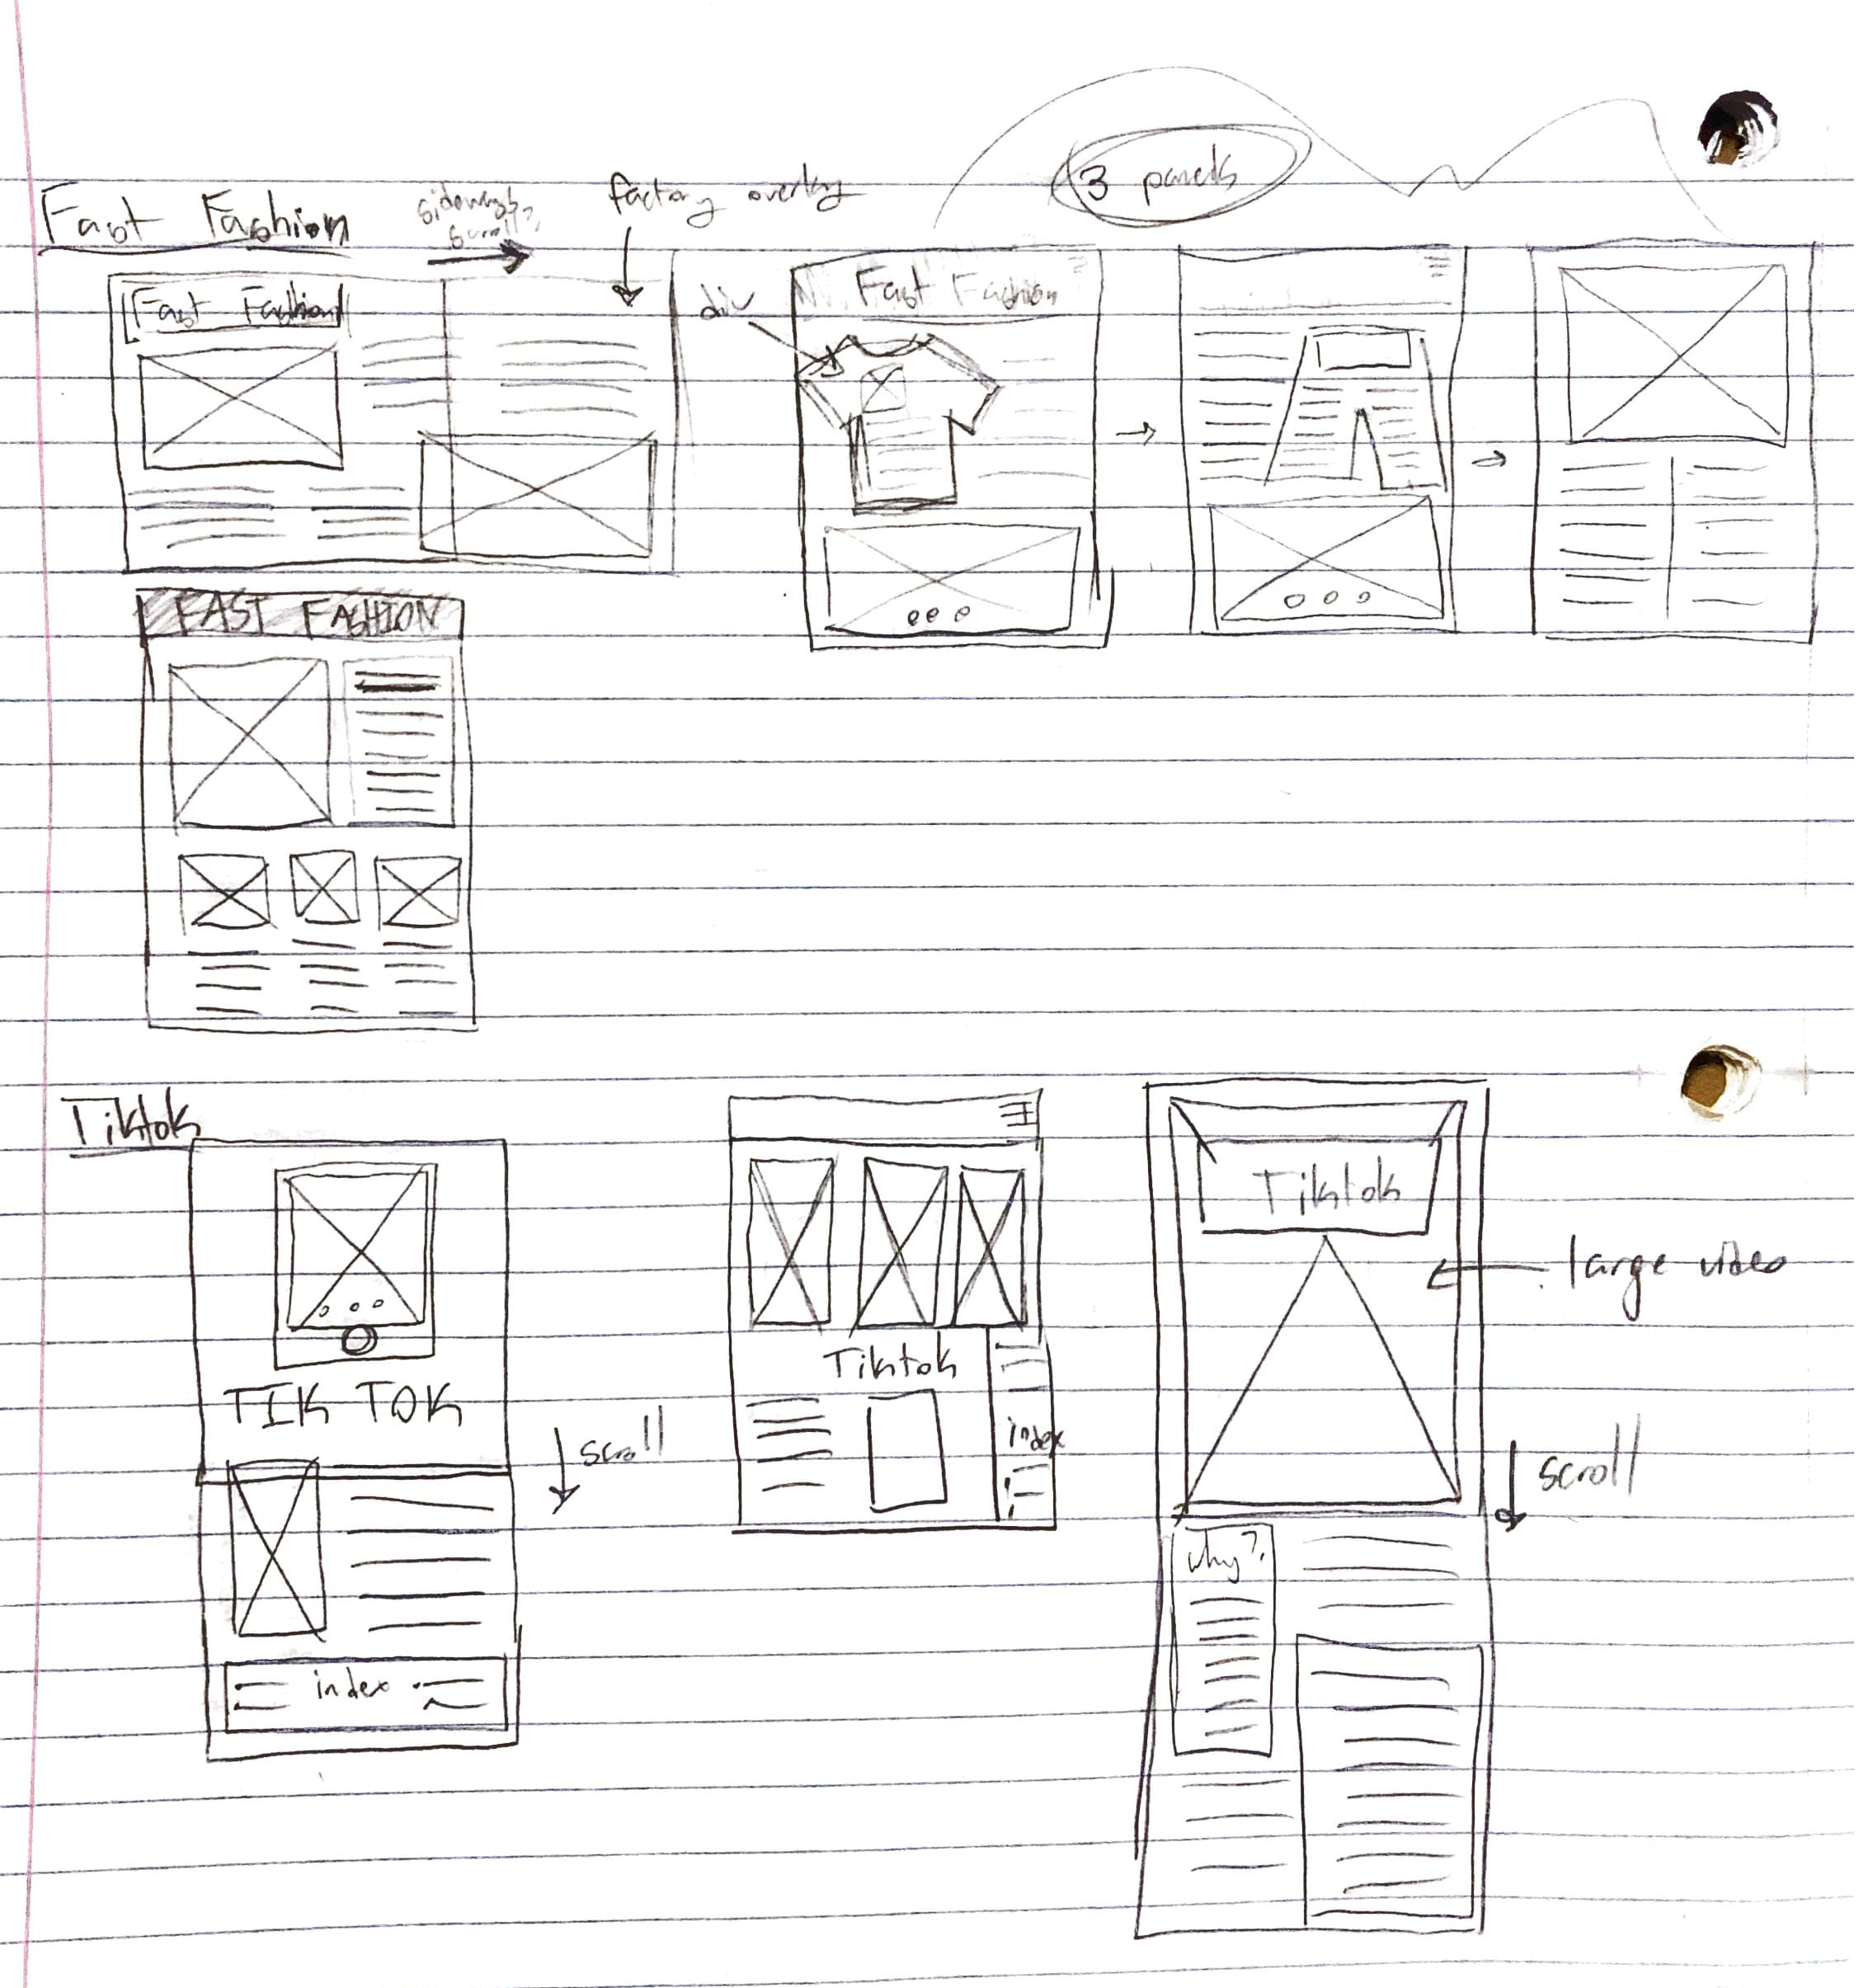 3 panels
Fast Fashion
sideways
scroll?
factory overlay
Fast Fashion
div
Fast Fashion
FAST FASHION
Tiktok
TIK TOK
scroll
index
Tiktok
index
Tiktok
large video
scroll
why?